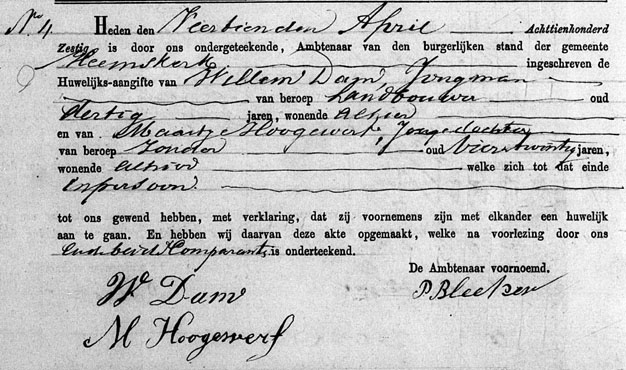 No 4. Heden den Veertienden April Achttienhonderd
Zestig is door ons ondergeteekende, Ambtenaar van den burgerlijken stand der gemeente
Heemskerk ingeschreven de
Huwelijks-aangifte van Willem Dam, Jongman
van beroep Landbouwer oud
dertig jaren, wonende Alhier
en van Maartje Hoogewerf, Jongedochter
van beroep Zonder oud vierentwintig jaren,
wonende alhier welke zich tot dat einde
in persoon
tot ons gewend hebben, met verklaring, dat zij voornemens zijn met elkander een huwelijk
aan te gaan. En hebben wij daarvan deze akte opgemaakt, welke na voorlezing door ons
en de beide Komparanten is onderteekend.
De Ambtenaar voornoemd.
W Dam
P Bleeker
M Hoogewerf